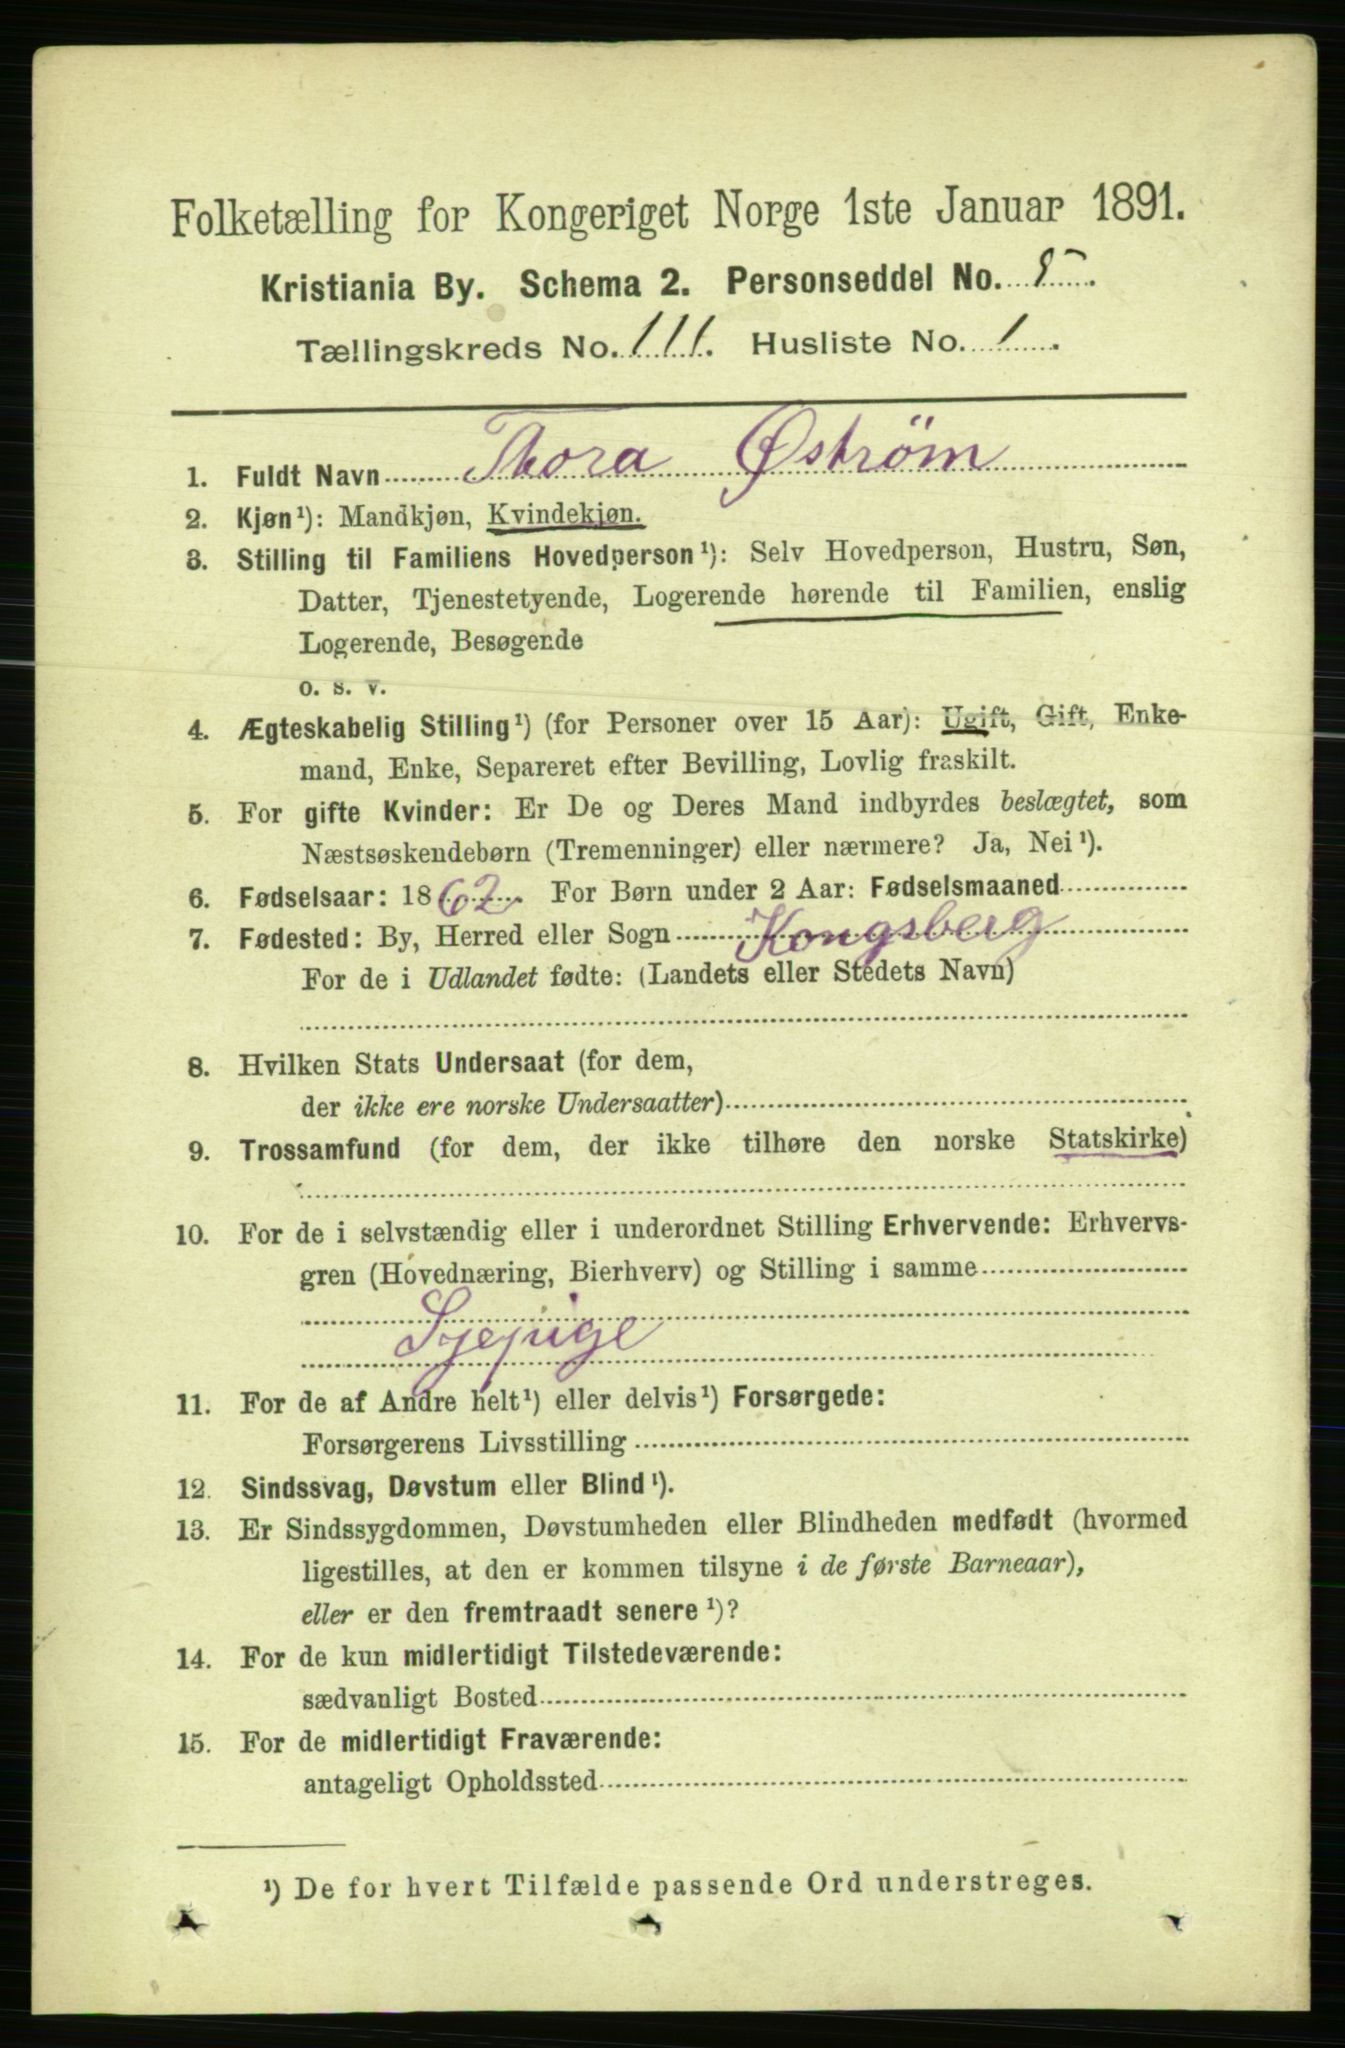 Folketælling for Kongeriget Norge 1ste Januar 1891.
Kristiania By. Schema 2. Personseddel No. 85.
Tællingskreds No. 111. Husliste No. 1.
1. Fuldt Navn Thora Øström
2. Kjøn¹): Mandkjøn, Kvindekjøn.
3. Stilling til Familiens Hovedperson¹): Selv Hovedperson, Hustru, Søn,
Datter, Tjenestetyende, Logerende hørende til Familien, enslig
Logerende, Besøgende
o. s. v.
4. Ægteskabelig Stilling¹) (for Personer over 15 Aar): Ugift, Gift, Enke-
mand, Enke, Separeret efter Bevilling, Lovlig fraskilt.
5. For gifte Kvinder: Er De og Deres Mand indbyrdes beslægtet, som
Næstsøskendebørn (Tremenninger) eller nærmere? Ja, Nei¹).
6. Fødselsaar: 1862. For Børn under 2 Aar: Fødselsmaaned
7. Fødested: By, Herred eller Sogn Kongsberg
For de i Udlandet fødte: (Landets eller Stedets Navn)
8. Hvilken Stats Undersaat (for dem,
der ikke ere norske Undersaatter)
9. Trossamfund (for dem, der ikke tilhøre den norske Statskirke)
10. For de i selvstændig eller i underordnet Stilling Erhvervende: Erhvervs-
gren (Hovednæring, Bierhverv) og Stilling i samme
Syepige
11. For de af Andre helt¹) eller delvis¹) Forsørgede:
Forsørgerens Livsstilling
12. Sindssvag, Døvstum eller Blind¹).
13. Er Sindssygdommen, Døvstumheden eller Blindheden medfødt (hvormed
ligestilles, at den er kommen tilsyne i de første Barneaar),
eller er den fremtraadt senere¹)?
14. For de kun midlertidigt Tilstedeværende:
sædvanligt Bosted
15. For de midlertidigt Fraværende:
antageligt Opholdssted
¹) De for hvert Tilfælde passende Ord understreges.